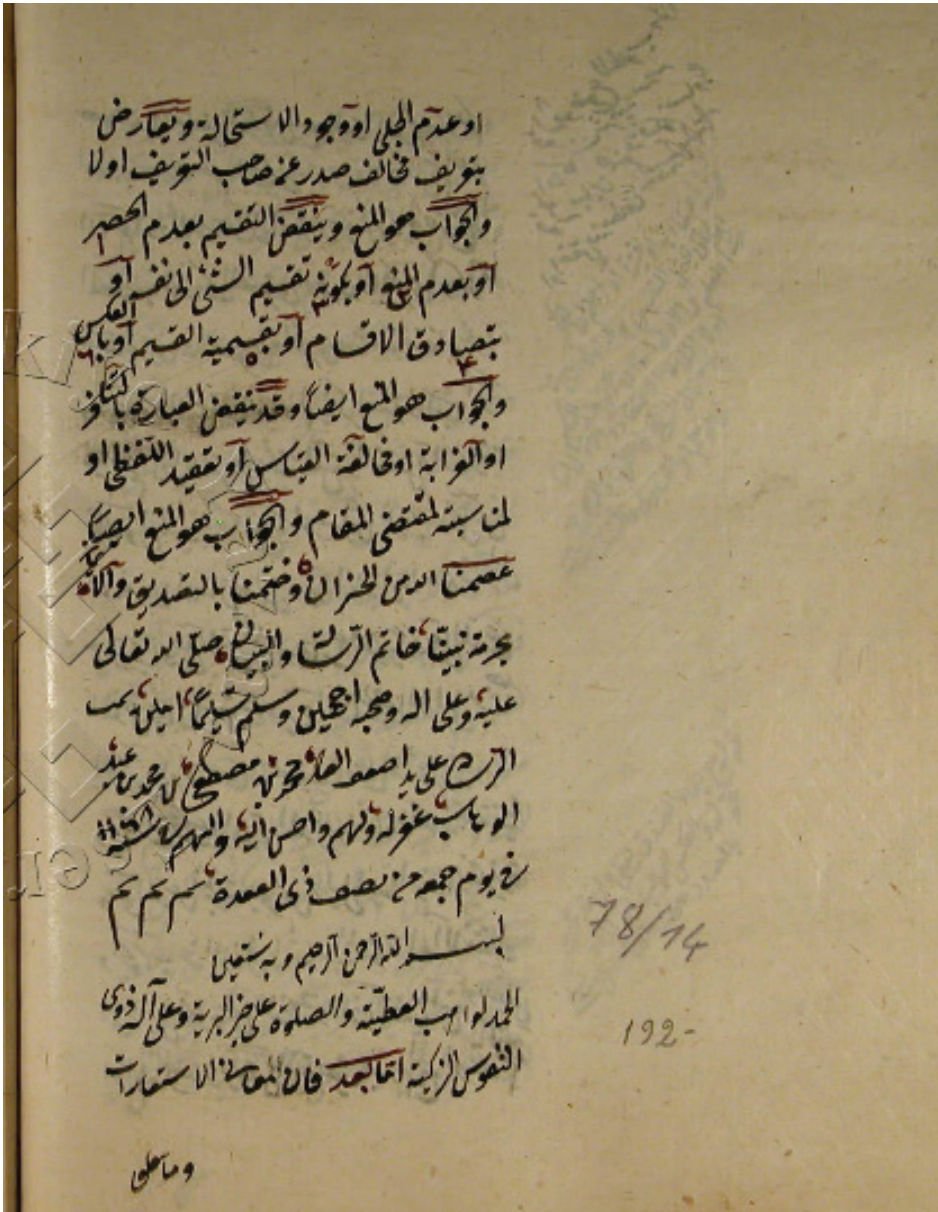 او عدم الجلى او وجود الاستحالة ويعارض
بتعريف مخالف صدر عن صاحب التعريف اولا
والجواب هو المنع وينقض التقسيم بعدم الحصر
او بعدم المنع او بكونه تقسيم الشئ الى نفسه او
بتصادق الاقسام او بقسمية القسيم او بالعكس
والجواب هو المنع ايضا وقد ينقض العبارة بالتنافر
او الغرابة او مخالفة القياس او تعقيد اللفظى او
لمناسبته لمقتضى المقام والجواب هو المنع ايضا
عصمنا الله من الخذلان وختمنا بالتصديق والايمان
بحرمة نبينا خاتم الرسالة والبيان صلى الله تعالى
عليه وعلى اله وصحبه اجمعين وسلم تسليما امين تمت
الرسالة على يد اضعف العباد محمد بن مصطفى بن محمد بن عبد
الوهاب غفر له ولهم واحسن اليه واليهم سنة
فى يوم جمعه من نصف ذى القعدة تم تم تم
بسم الله الرحمن الرحيم وبه نستعين
الحمد لواهب العطية والصلوة على خير البرية وعلى آله ذوى
النفوس الزكية اما بعد فان معانى الاستعارات
وما يتعلق
78/14
192-